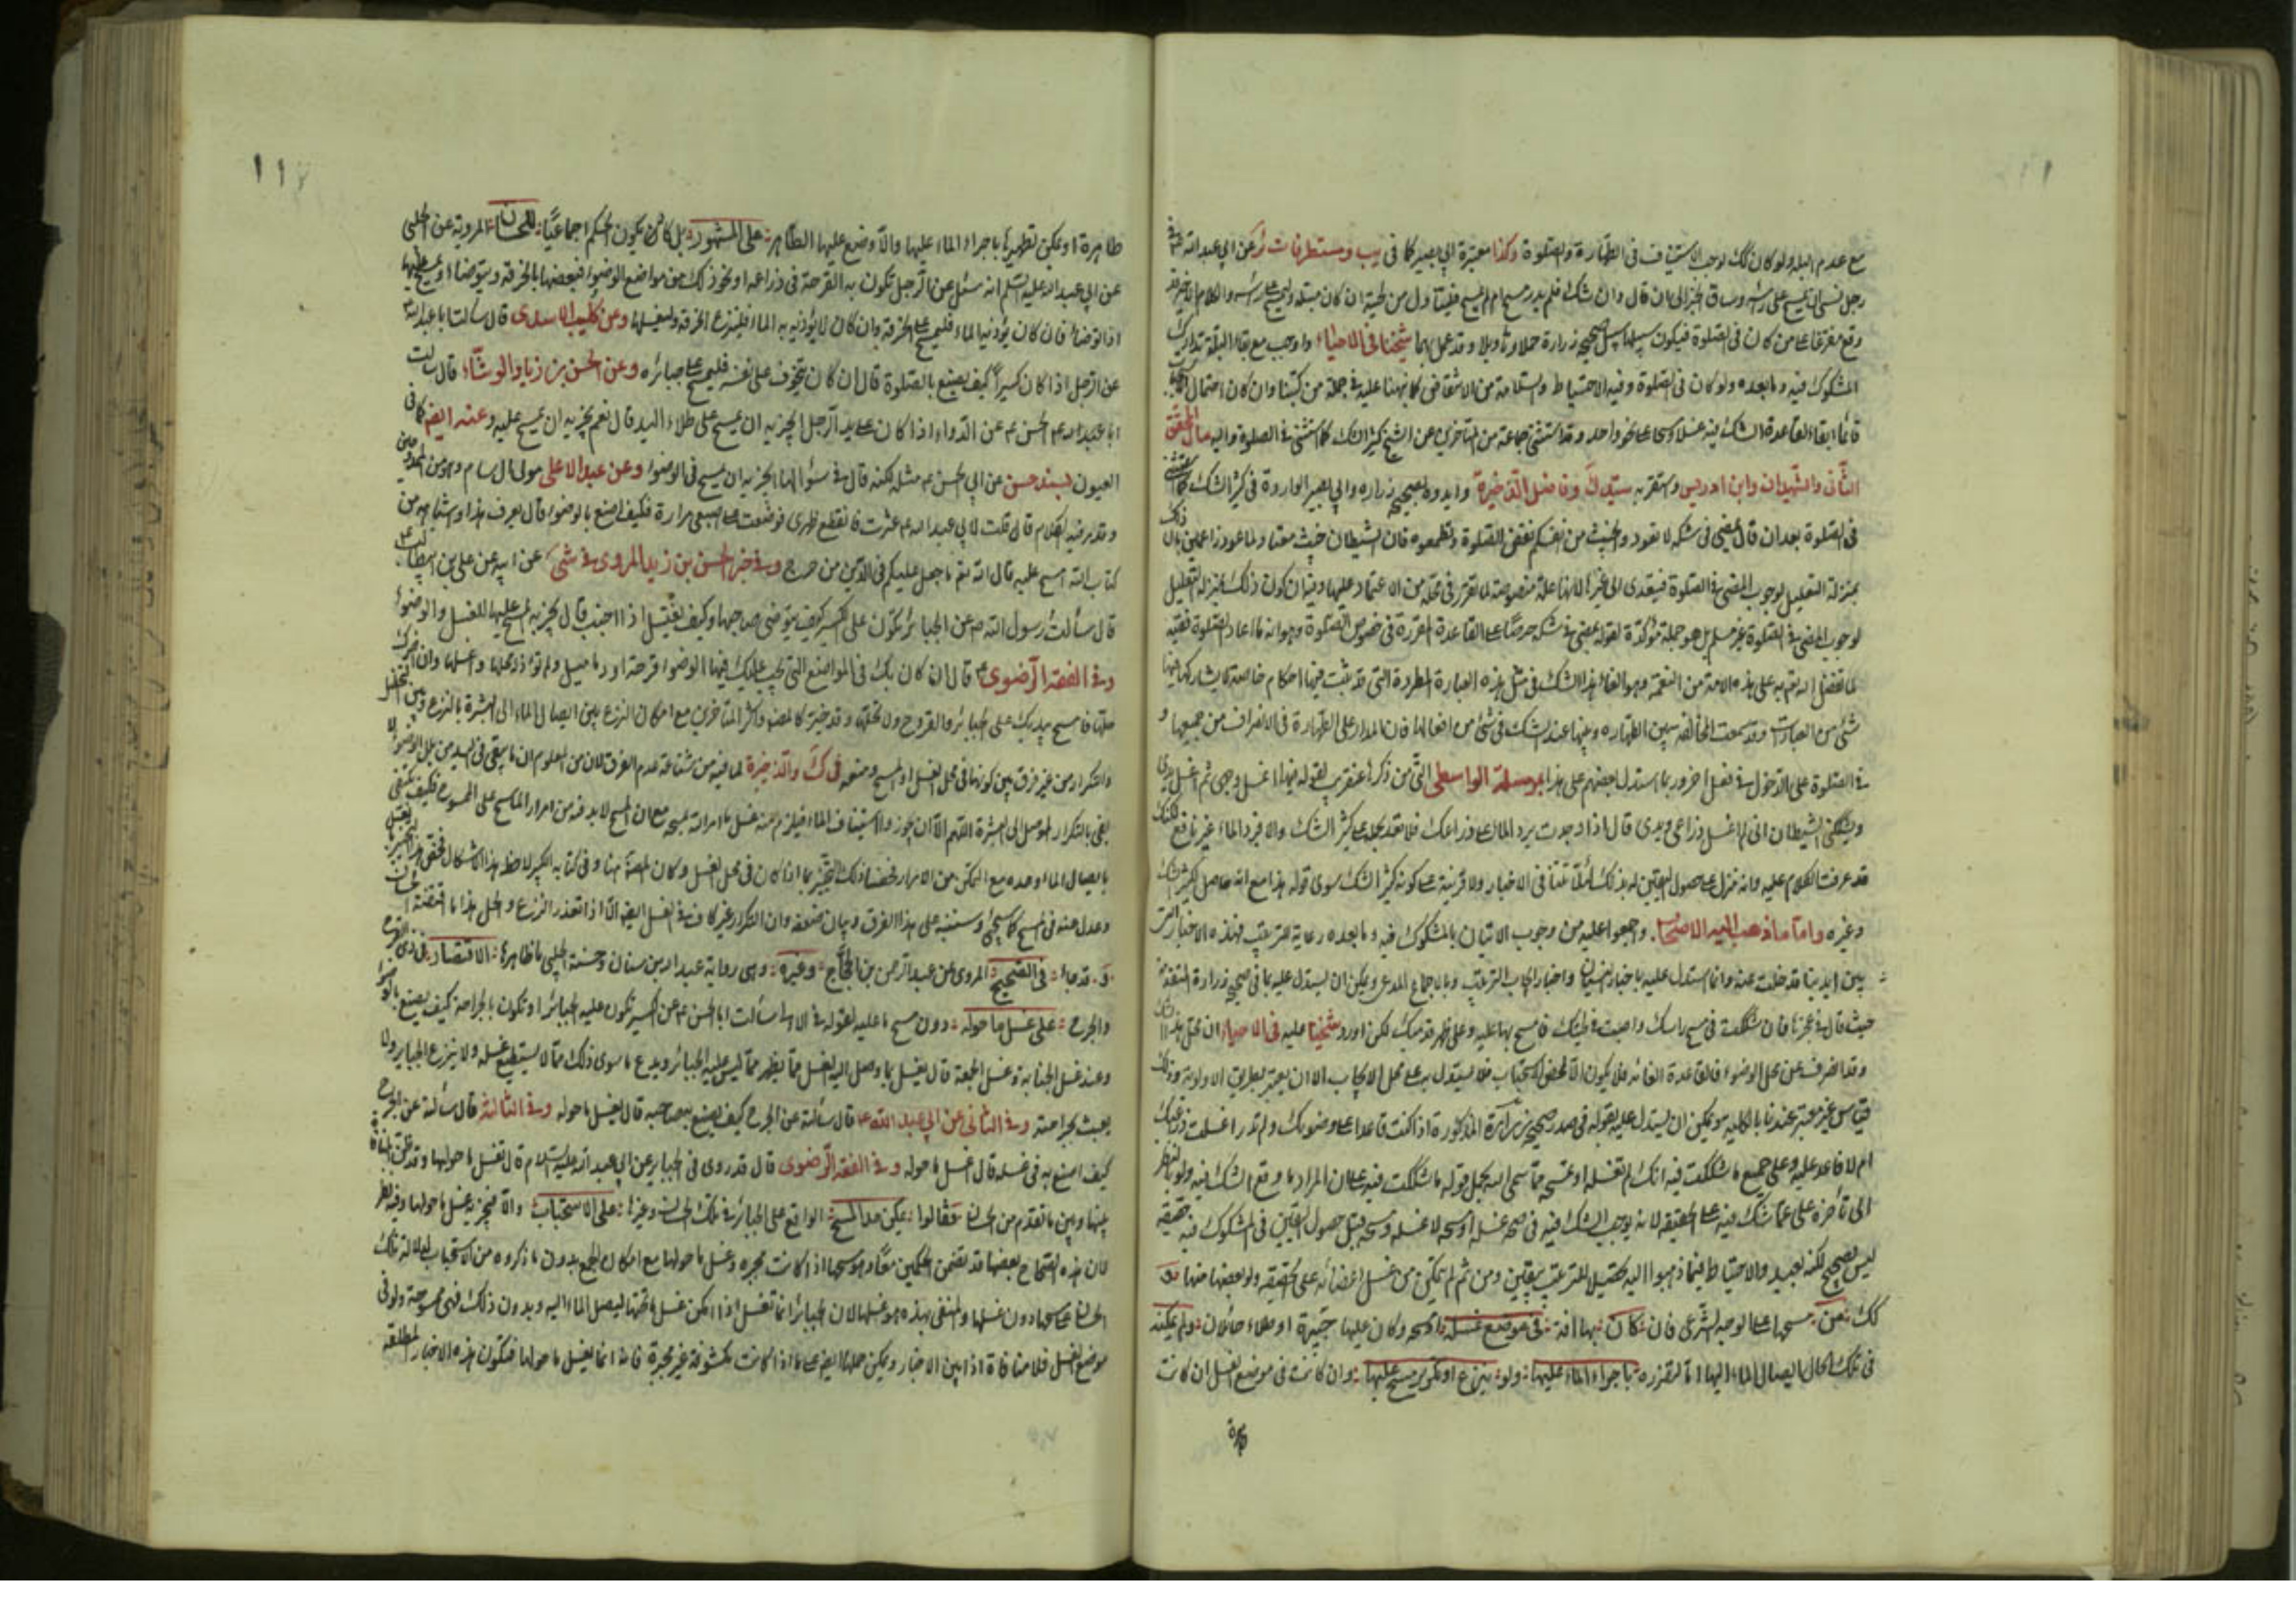 مع عدم البلة ولو كان كك لوجب الاستيناف في الطهارة والصلوة وكذا معتبرة ابي بصير كما في يب ومستطرفات ئر عن ابي عبد الله ع في
رجل نسي ان يمسح على راسه وساق الخبر الى ان قال وان شك فلم يدر مسح ام لم يمسح فليتناول من لحيته ان كان مبتلة وليمسح على راسه
وقع مفرغا عمن كان في الصلوة فيكون سبيلها سبيل صحيح زرارة حملا وتاويلا وقد عمل بهما شيخنا في الاحياء واوجب مع بقاء البلة تدارك
المشكوك فيه وما بعده ولو كان في الصلوة وفيه الاحتياط والسلامة من الاشقاق كما نبهنا عليه في جملة من كتبنا وان كان احتمال
قائما ابقاء لقاعدة الشك فيه غسلا ومسحا على نحو واحد وقد استثنى جماعة من المتاخرين عن الشيخ كثير الشك كما استثنى في الصلوة واليه مال المحقق
الثاني والشهيدان وابن ادريس واستقربه سيد ك وفاضل الذخيرة وايدوه بصحيح زرارة وابي بصير الواردة في كثير الشك
في الصلوة بعد ان قال يمضي في شكه لا تعود والخبيث من انفسكم نقض الصلوة فتطمعوه فان الشيطان خبيث معتاد لما عود زاعمين بان ذلك
بمنزلة التعليل لوجوب المضي في الصلوة فيتعدى الى غيرها لانها علة منصوصة لما تقرر في محله من الاعتماد عليها وفيه ان كون ذلك بمنزلة التعليل
لوجوب المضي في الصلوة غير مسلم بل هو جملة مؤكدة لقوله يمضي في شكه حرصا على القاعدة المقررة في خصوص الصلوة وهو انه ما اعاد الصلوة فقيه
لما تفضل الله تعالى به على هذه الامة من النعمة وهو الغاء هذا الشك في مثل هذه العبادة المطردة التي قد ثبت فيها احكام خاصة لا يشاركها فيها
شيء من العبادات وقد سمعت المخالفة بين الطهارة وبينها عند الشك في شيء من افعالها فان المدار على الطهارة في الانصراف من جميعها و
في الصلوة على الدخول في فعل اخر وربما استدل بعضهم على هذا بمرسلة الواسطي التي مر ذكرها عنقريب لقوله فيها اغسل وجهي ثم اغسل يدي
ويشككني الشيطان اني لم اغسل ذراعي ويدي قال اذا وجدت برد الماء على ذراعك فلا تعد بحمله على كثير الشك والا فبرد الماء غير نافع
قد عرفت الكلام عليه وانه منزل على حصول اليقين له بذلك لئلا تتنافى الاخبار ولا قرينة على كونه كثير الشك سوى قوله هذا مع انه حاصل لكثير الشك
وغيره واما ما ذهب اليه الاصحاب واجمعوا عليه من وجوب الاتيان بالمشكوك فيه وما بعده رعاية للترتيب فهذه الاخبار التي
بين ايدينا قد خلت عنه وانما استدل عليه باخبار النسيان واخبار ايجاب الترتيب وبالاجماع المدعى ويمكن ان يستدل عليه بما في صحيح زرارة المتقدم
حيث قال في عجزها فان شككت في مسح راسك واصبت في لحيتك فامسح بها عليه وعلى ظهر قدميك لكن اورد شيخنا عليه في الاحياء ان محل هذا الشك
وقد انصرف عن محل الوضوء فالقاعدة الغائه فلا يكون الا لمحض الاستحباب فلا يستدل به على محل الايجاب الا ان يعتبر بطريق الاولوية وذلك
قياس غير معتبر عندنا بالكلية ويمكن ان يستدل عليه بقوله في صدر صحيح زرارة المذكورة اذا كنت قاعدا على وضوئك ولم تدر اغسلت ذراعيك
ام لا فاعد عليه وعلى جميع ما شككت فيه انك لم تغسله او تمسحه مما سمى الله بحمل قوله ما شككت فيه على ان المراد ما وقع الشك فيه ولو بالنظر
الى تاخره على ما شك فيه على الحقيقة لانه يوجب الشك فيه في صحة غسله او مسحه لا غسله ومسحه قبل حصول اليقين في المشكوك فيه حقيقة
ليس بصحيح لكنه بعيد والاحتياط فيما ذهبوا اليه لتحصيل الترتيب بيقين ومن ثم لم يتمكن من غسل اعضائه على الحقيقة ولو بعضها منها دق
كك من مسحها على الوجه الشرعي فان كان بها افة في موضع غسله او مسحه وكان عليها جبيرة او طلاء حائلان ولم يمكنه
في تلك الحال ايصال الماء اليها اما لتضرره باجراء الماء عليها ولو بنزع او تكرير مسح عليها وان كانت في موضع الغسل ان كانت
طاهرة
١١٧
طاهرة او يمكن تطهيرها باجراء الماء عليها والا وضع عليها الطاهر على المشهور بل كاد ان يكون الحكم اجماعيا للحسان المروية عن الحلبي
عن ابي عبد الله عليه السلم انه سئل عن الرجل تكون به القرحة في ذراعه او نحو ذلك من مواضع الوضوء فيعصبها بالخرقة ويتوضا ويمسح عليها
اذا توضا فان كان يؤذيه الماء فليمسح على الخرقة وان كان لا يؤذيه الماء فلينزع الخرقة وليغسلها وعن كليب الاسدي قال سالت ابا عبد الله ع
عن الرجل اذا كان كسيرا كيف يصنع بالصلوة قال ان كان يتخوف على نفسه فليمسح على جبائره وعن الحسن بن زياد الوشاء قال سالت
ابا الحسن ع عن الدواء اذا كان على يد الرجل ايجزيه ان يمسح على طلاء اليد قال نعم يجزيه ان يمسح عليه وعنه ايض كما في
العيون بسند حسن عن ابي الحسن ع مثله لكنه قال في سؤالها ايجزيه ان يمسح في الوضوء وعن عبد الاعلى مولى ال سام وهو من الممدوحين
وقد مر فيه الكلام قال قلت لابي عبد الله ع عثرت فانقطع ظفري فوضعت على اصبعي مرارة فكيف اصنع بالوضوء قال يعرف هذا واشباهه من
كتاب الله امسح عليه قال الله تع ما جعل عليكم في الدين من حرج وفي خبر الحسن بن زيد المروي في شي عن ابيه عن علي بن ابي طالب ع
قال سألت رسول الله ص عن الجبائر تكون على الكسير كيف يتوضى صاحبها وكيف يغتسل اذا اجنب قال يجزيه المسح عليها للغسل والوضوء
وفي الفقه الرضوي قال ان كان بك في المواضع التي يجب عليك فيها الوضوء قرحة او دماميل ولم تؤذك فحلها واغسلها وان اضرك
حلها فامسح يديك على الجبائر والقروح ولا تحلها وقد خير كالمص واكثر المتاخرين مع امكان النزع بين ايصال الماء الى البشرة بالنزع وبين التخلل
والتكرار من غير فرق بين كونها في محل الغسل او المسح ومنعه في ك والذخيرة لما فيه من شناعة عدم الفرق لان من المعلوم ان ما يبقى في اليد من بلل الوضوء لا
يفي بالتكرار الموصل الى البشرة اللهم الا ان يجوز والاستيناف الماء فيلزم منه غسل ما امر الله بمسحه مع ان المسح لا بد فيه من امرار الماسح على الممسوح فكيف يكتفى
بايصال الماء وحده مع التمكن من الامرار فخصا ذلك التخيير بما اذا كان في محل الغسل وكان المصنف هنا وفي كتابه الكبير لاحظ هذا الاشكال
وعدل عنه في المسح كما سيجئ وسننبه على هذا الفرق وبيان ضعفه وان التكرار غير كاف في الغسل ايض الا اذا تعذر النزع ولعل هذا ما اقتضته
وقد جاء في الصحيح المروي عن عبد الرحمن بن الحجاج وغيره وهي رواية عبد الله بن سنان وحسنة الحلبي ما ظاهره الاقتصار في ذي القرح
والجرح على غسل ما حوله دون مسح ما عليه لقوله في الاول سألت ابا الحسن ع عن الكسير تكون عليه الجبائر او تكون به الجراحة كيف يصنع بالوضوء
وعند غسل الجنابة وغسل الجمعة قال يغسل ما وصل اليه الغسل مما يظهر مما ليس عليه الجبائر ويدع ما سوى ذلك مما لا يستطيع غسله ولا ينزع الجبائر ولا
يعبث بجراحته وفي الثاني عن ابي عبد الله ع قال سألته عن الجرح كيف يصنع به صاحبه قال يغسل ما حوله وفي الثالثة قال سألته عن الجرح
كيف اصنع به في غسله قال غسل ما حوله وفي الفقه الرضوي قال قد روي في الجبائر عن ابي عبد الله عليه السلام قال تغسل ما حولها وقد ظن المنافاة
بينها وبين ما تقدم من الحسان فقالوا يمكن حمل المسح الواقع على الجبائر في تلك الحسان وغيرها على الاستحباب والا فيجزيه غسل ما حولها وفيه نظر
لان هذه الصحاح بعضها قد تضمن الحكمين معا وهو مسحها اذا كانت مجبرة وغسل ما حولها مع امكان الجمع بدون ما ذكروه من الاستحباب لدلالة تلك
الحسان على مسحها دون غسلها والمنفي بهذه هو غسلها لان الجبائر انما تغسل اذا امكن غسل ما تحتها ليصل الماء اليه وبدون ذلك فهي ممسوحة ولو في
موضع الغسل فلا منافاة اذا بين الاخبار ويمكن حملها ايض على ما اذا كانت مكشوفة غير مجبرة فانه انما يغسل ما حولها فتكون هذه الاخبار المطلقة